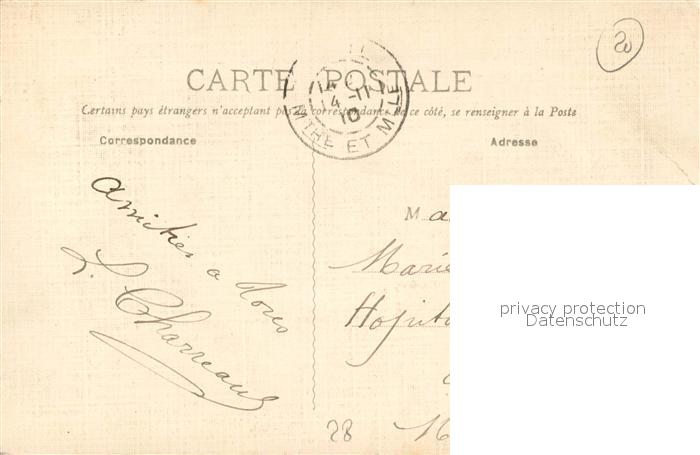 CARTE POSTALE
Certains pays étrangers n'acceptant pas la correspondance de ce côté, se renseigner à la Poste
Correspondance
Adresse
14
4-11
10
MTHE ET MLLE
amitiés a tous
L. Charreau
Ma
Marie
Hopita
M
28
20
privacy protection
Datenschutz